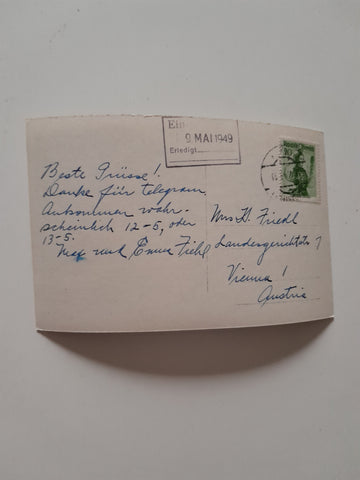 9 MAI 1949
Erledigt
Beste Grüsse!
Danke für telegram
Ankommen wahr-
scheinlich 12-5, oder
13-5.
Max und
Mrs. H. Friedl
Landesgerichtstr. 7
Vienna 1
Austria